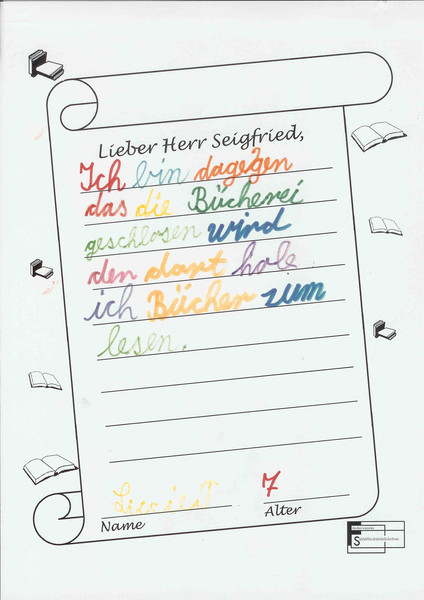 Lieber Herr Seigfried,
Ich bin dagegen
das die Bücherei
geschlosen wird
den dort hole
ich Bücher zum
lesen.
7
Name
Alter